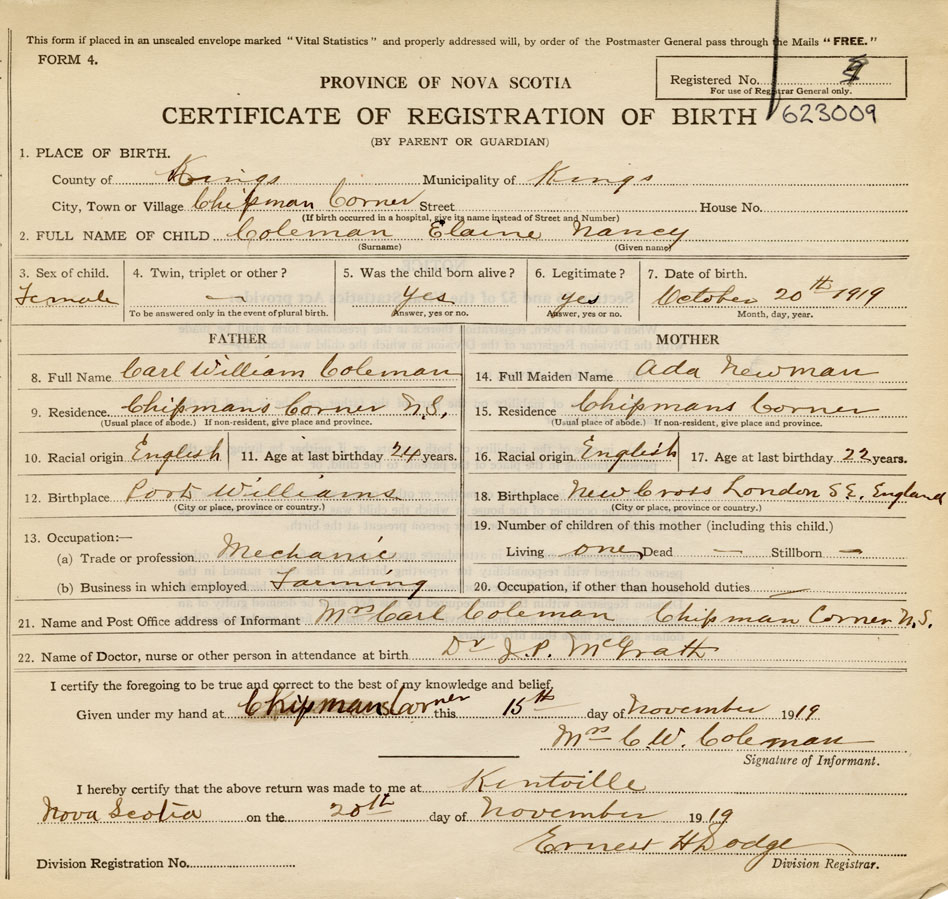 This form if placed in an unsealed envelope marked "Vital Statistics" and properly addressed will, by order of the Postmaster General pass through the Mails "FREE."
FORM 4.
Registered No.
For use of Registrar General only.
PROVINCE OF NOVA SCOTIA
CERTIFICATE OF REGISTRATION OF BIRTH 623009
(BY PARENT OR GUARDIAN)
1. PLACE OF BIRTH.
County of Kings Municipality of Kings
City, Town or Village Chipman Corner Street House No.
(If birth occurred in a hospital, give its name instead of Street and Number)
2. FULL NAME OF CHILD Coleman Elaine Nancy
(Surname) (Given name)
3. Sex of child. 4. Twin, triplet or other? 5. Was the child born alive? 6. Legitimate? 7. Date of birth.
Female — Yes Yes October 20th 1919
To be answered only in the event of plural birth. Answer, yes or no. Answer, yes or no. Month, day, year.
FATHER MOTHER
8. Full Name Carl William Coleman 14. Full Maiden Name Ada Newman
9. Residence Chipmans Corner N.S. 15. Residence Chipmans Corner
(Usual place of abode.) If non-resident, give place and province. (Usual place of abode.) If non-resident, give place and province.
10. Racial origin English 11. Age at last birthday 24 years. 16. Racial origin English 17. Age at last birthday 22 years.
12. Birthplace Port Williams 18. Birthplace New Cross London S.E. England
(City or place, province or country.) (City or place, province or country.)
13. Occupation:— 19. Number of children of this mother (including this child.)
(a) Trade or profession Mechanic Living one Dead — Stillborn —
(b) Business in which employed Farming 20. Occupation, if other than household duties
21. Name and Post Office address of Informant Mrs Carl Coleman Chipman Corner N.S.
22. Name of Doctor, nurse or other person in attendance at birth Dr J.P. McGrath
I certify the foregoing to be true and correct to the best of my knowledge and belief,
Given under my hand at Chipmans Corner this 15th day of November 1919
Mrs C.W. Coleman
Signature of Informant.
I hereby certify that the above return was made to me at Kentville
Nova Scotia on the 20th day of November 1919
Ernest H Dodge
Division Registration No. Division Registrar.